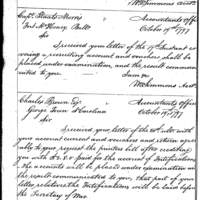 Wm Simmons Acct
Capt. Staats Morris
Fort McHenry, Balt
Accountants Office
October 19th 1797
Sir
I received your letter of the 17th Instant
your account and vouchers shall be
placed under examination, and the result communicated
to you.
I am &c
Wm Simmons Acct
Charles Brown Esqr
George Town S Carolina
Accountants Office
October 19th 1797
Sir
I received your letter of the with
your account current and vouchers and return
to your request the printers bill after crediting
you with paid for the account of Fortifications
the accounts will be placed under examination and
the result communicated to you; that part of your
letter relative the Fortifications will be laid before
the Secretary of War.